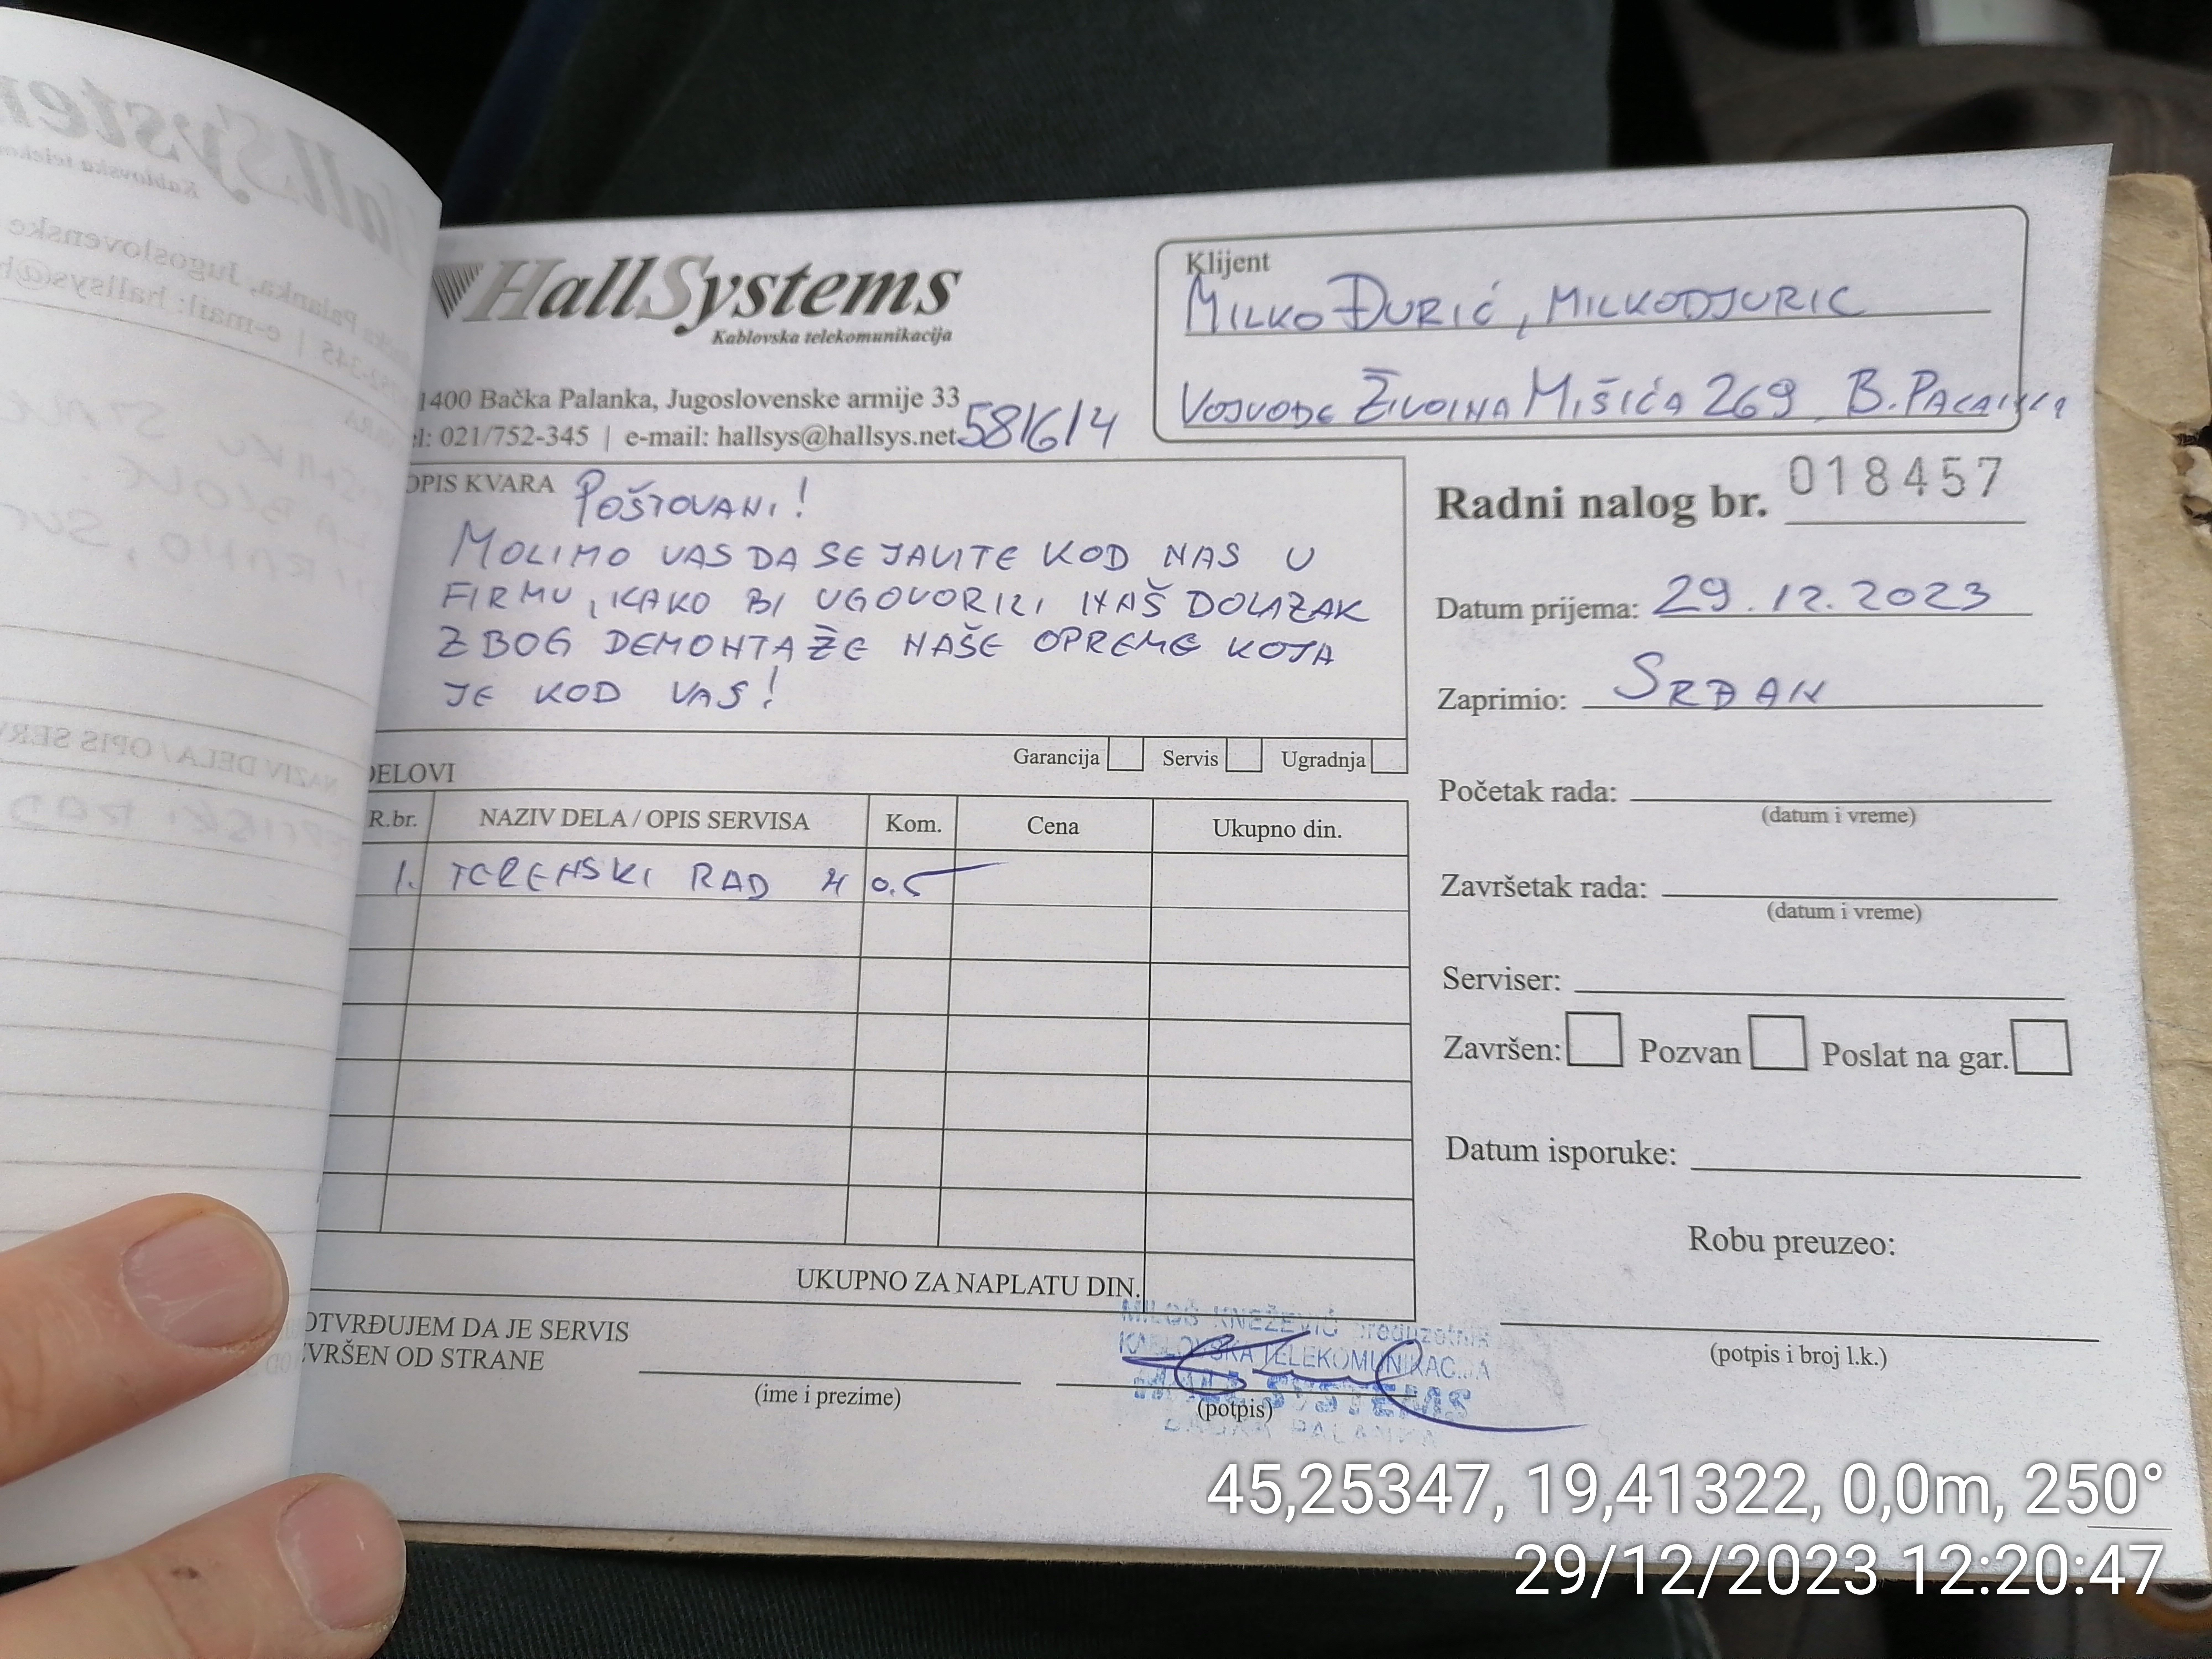 HallSystems
Kablovska telekomunikacija
1400 Bačka Palanka, Jugoslovenske armije 33
l: 021/752-345 | e-mail: hallsys@hallsys.net
581614
Klijent
MILKO ĐURIĆ, MILKODJURIC
VOJVODE ŽIVOINA MIŠIĆA 269 B. PALANKA
OPIS KVARA POŠTOVANI!
MOLIMO VAS DA SE JAVITE KOD NAS U
FIRMU, KAKO BI UGOVORILI NAŠ DOLAZAK
ZBOG DEMONTAŽE NAŠE OPREME KOJA
JE KOD VAS!
Garancija Servis Ugradnja
DELOVI
R.br. NAZIV DELA / OPIS SERVISA Kom. Cena Ukupno din.
1. TERENSKI RAD H 0.5
UKUPNO ZA NAPLATU DIN.
OTVRĐUJEM DA JE SERVIS
VRŠEN OD STRANE
(ime i prezime)
(potpis)
MILOŠ KNEŽEVIĆ preduzetnik
KABLOVSKA TELEKOMUNIKACIJA
HALL SYSTEMS
BAČKA PALANKA
Radni nalog br. 018457
Datum prijema: 29.12.2023
Zaprimio: SRĐAN
Početak rada:
(datum i vreme)
Završetak rada:
(datum i vreme)
Serviser:
Završen: Pozvan Poslat na gar.
Datum isporuke:
Robu preuzeo:
(potpis i broj l.k.)
45,25347, 19,41322, 0,0m, 250°
29/12/2023 12:20:47